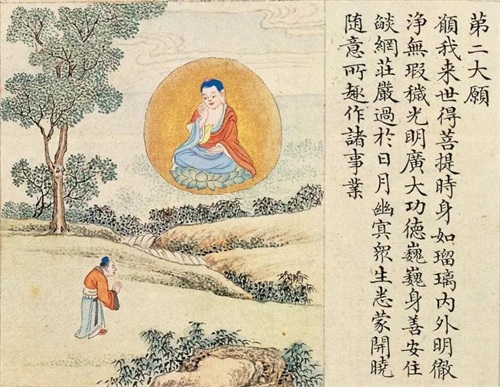 第二大愿
願我来世得菩提時身如瑠璃内外明徹
淨無瑕穢光明廣大功德巍巍身善安住
燄網莊嚴過於日月幽冥眾生悉蒙開曉
随意所趣作諸事業